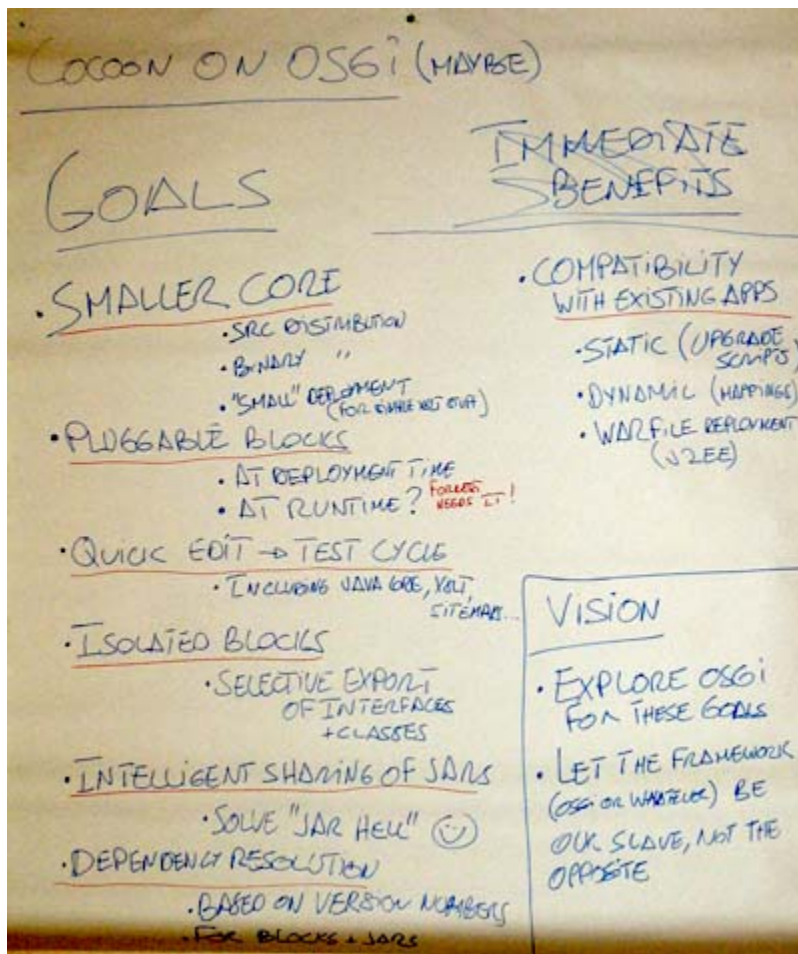 COCOON ON OSGi (MAYBE)
GOALS
• SMALLER CORE
• SRC DISTRIBUTION
• BINARY "
• "SMALL" DEPLOYMENT
(FOR SIMPLE XSLT STUFF)
• PLUGGABLE BLOCKS
• AT DEPLOYMENT TIME
• AT RUNTIME? FORREST
NEEDS IT!
• QUICK EDIT → TEST CYCLE
• INCLUDING JAVA CODE, XSLT,
SITEMAPS...
• ISOLATED BLOCKS
• SELECTIVE EXPORT
OF INTERFACES
+CLASSES
• INTELLIGENT SHARING OF JARS
• SOLVE "JAR HELL" ☺
• DEPENDENCY RESOLUTION
• BASED ON VERSION NUMBERS
• FOR BLOCKS + JARS
IMMEDIATE
BENEFITS
• COMPATIBILITY
WITH EXISTING APPS
• STATIC (UPGRADE
SCRIPTS)
• DYNAMIC (MAPPINGS)
• WARFILE DEPLOYMENT
(J2EE)
VISION
• EXPLORE OSGi
FOR THESE GOALS
• LET THE FRAMEWORK
(OSGi OR WHATEVER) BE
OUR SLAVE, NOT THE
OPPOSITE